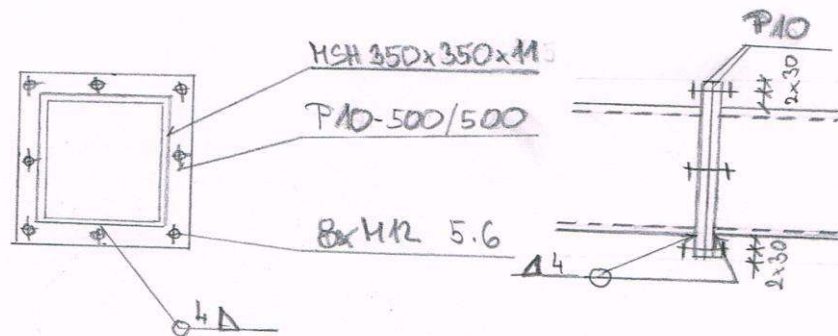 MSH 350x350x115
P10-500/500
8xM12 5.6
4
P10
2x30
4
2x30